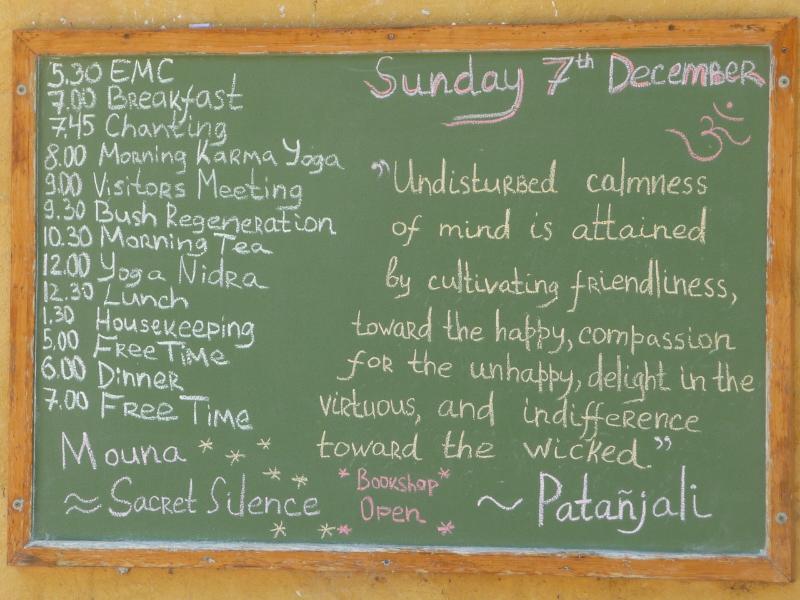 5.30 EMC
7.00 Breakfast
7.45 Chanting
8.00 Morning Karma Yoga
9.00 Visitors Meeting
9.30 Bush Regeneration
10.30 Morning Tea
12.00 Yoga Nidra
12.30 Lunch
1.30 Housekeeping
5.00 Free Time
6.00 Dinner
7.00 Free Time
Mouna
≈ Sacret Silence
Sunday 7th December
ॐ
"Undisturbed calmness
of mind is attained
by cultivating friendliness,
toward the happy, compassion
for the unhappy, delight in the
virtuous, and indifference
toward the wicked."
~ Patañjali
* Bookshop *
* Open *